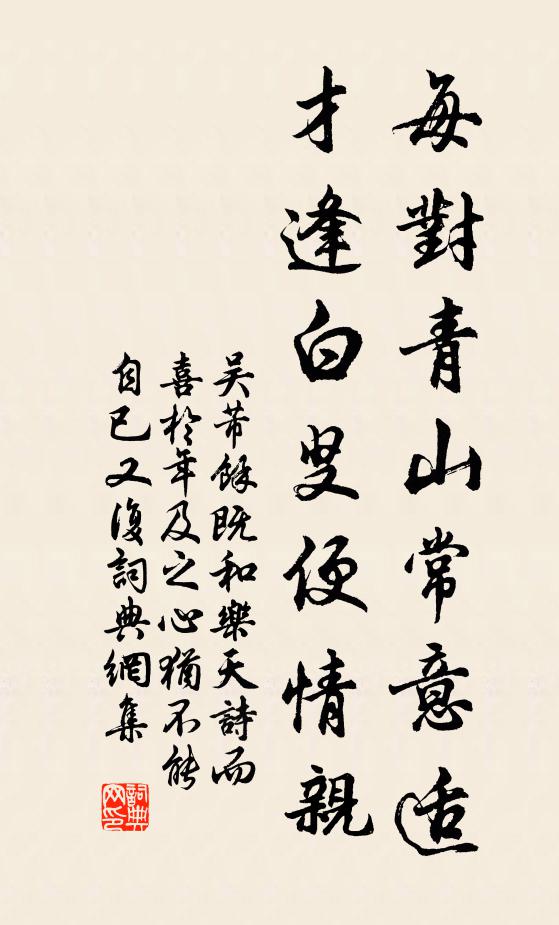 每對青山常意适
才逢白叟便情親
吳芾餘既和樂天詩而
喜於年及之心猶不能
自已又復詞典網集
詞典网印